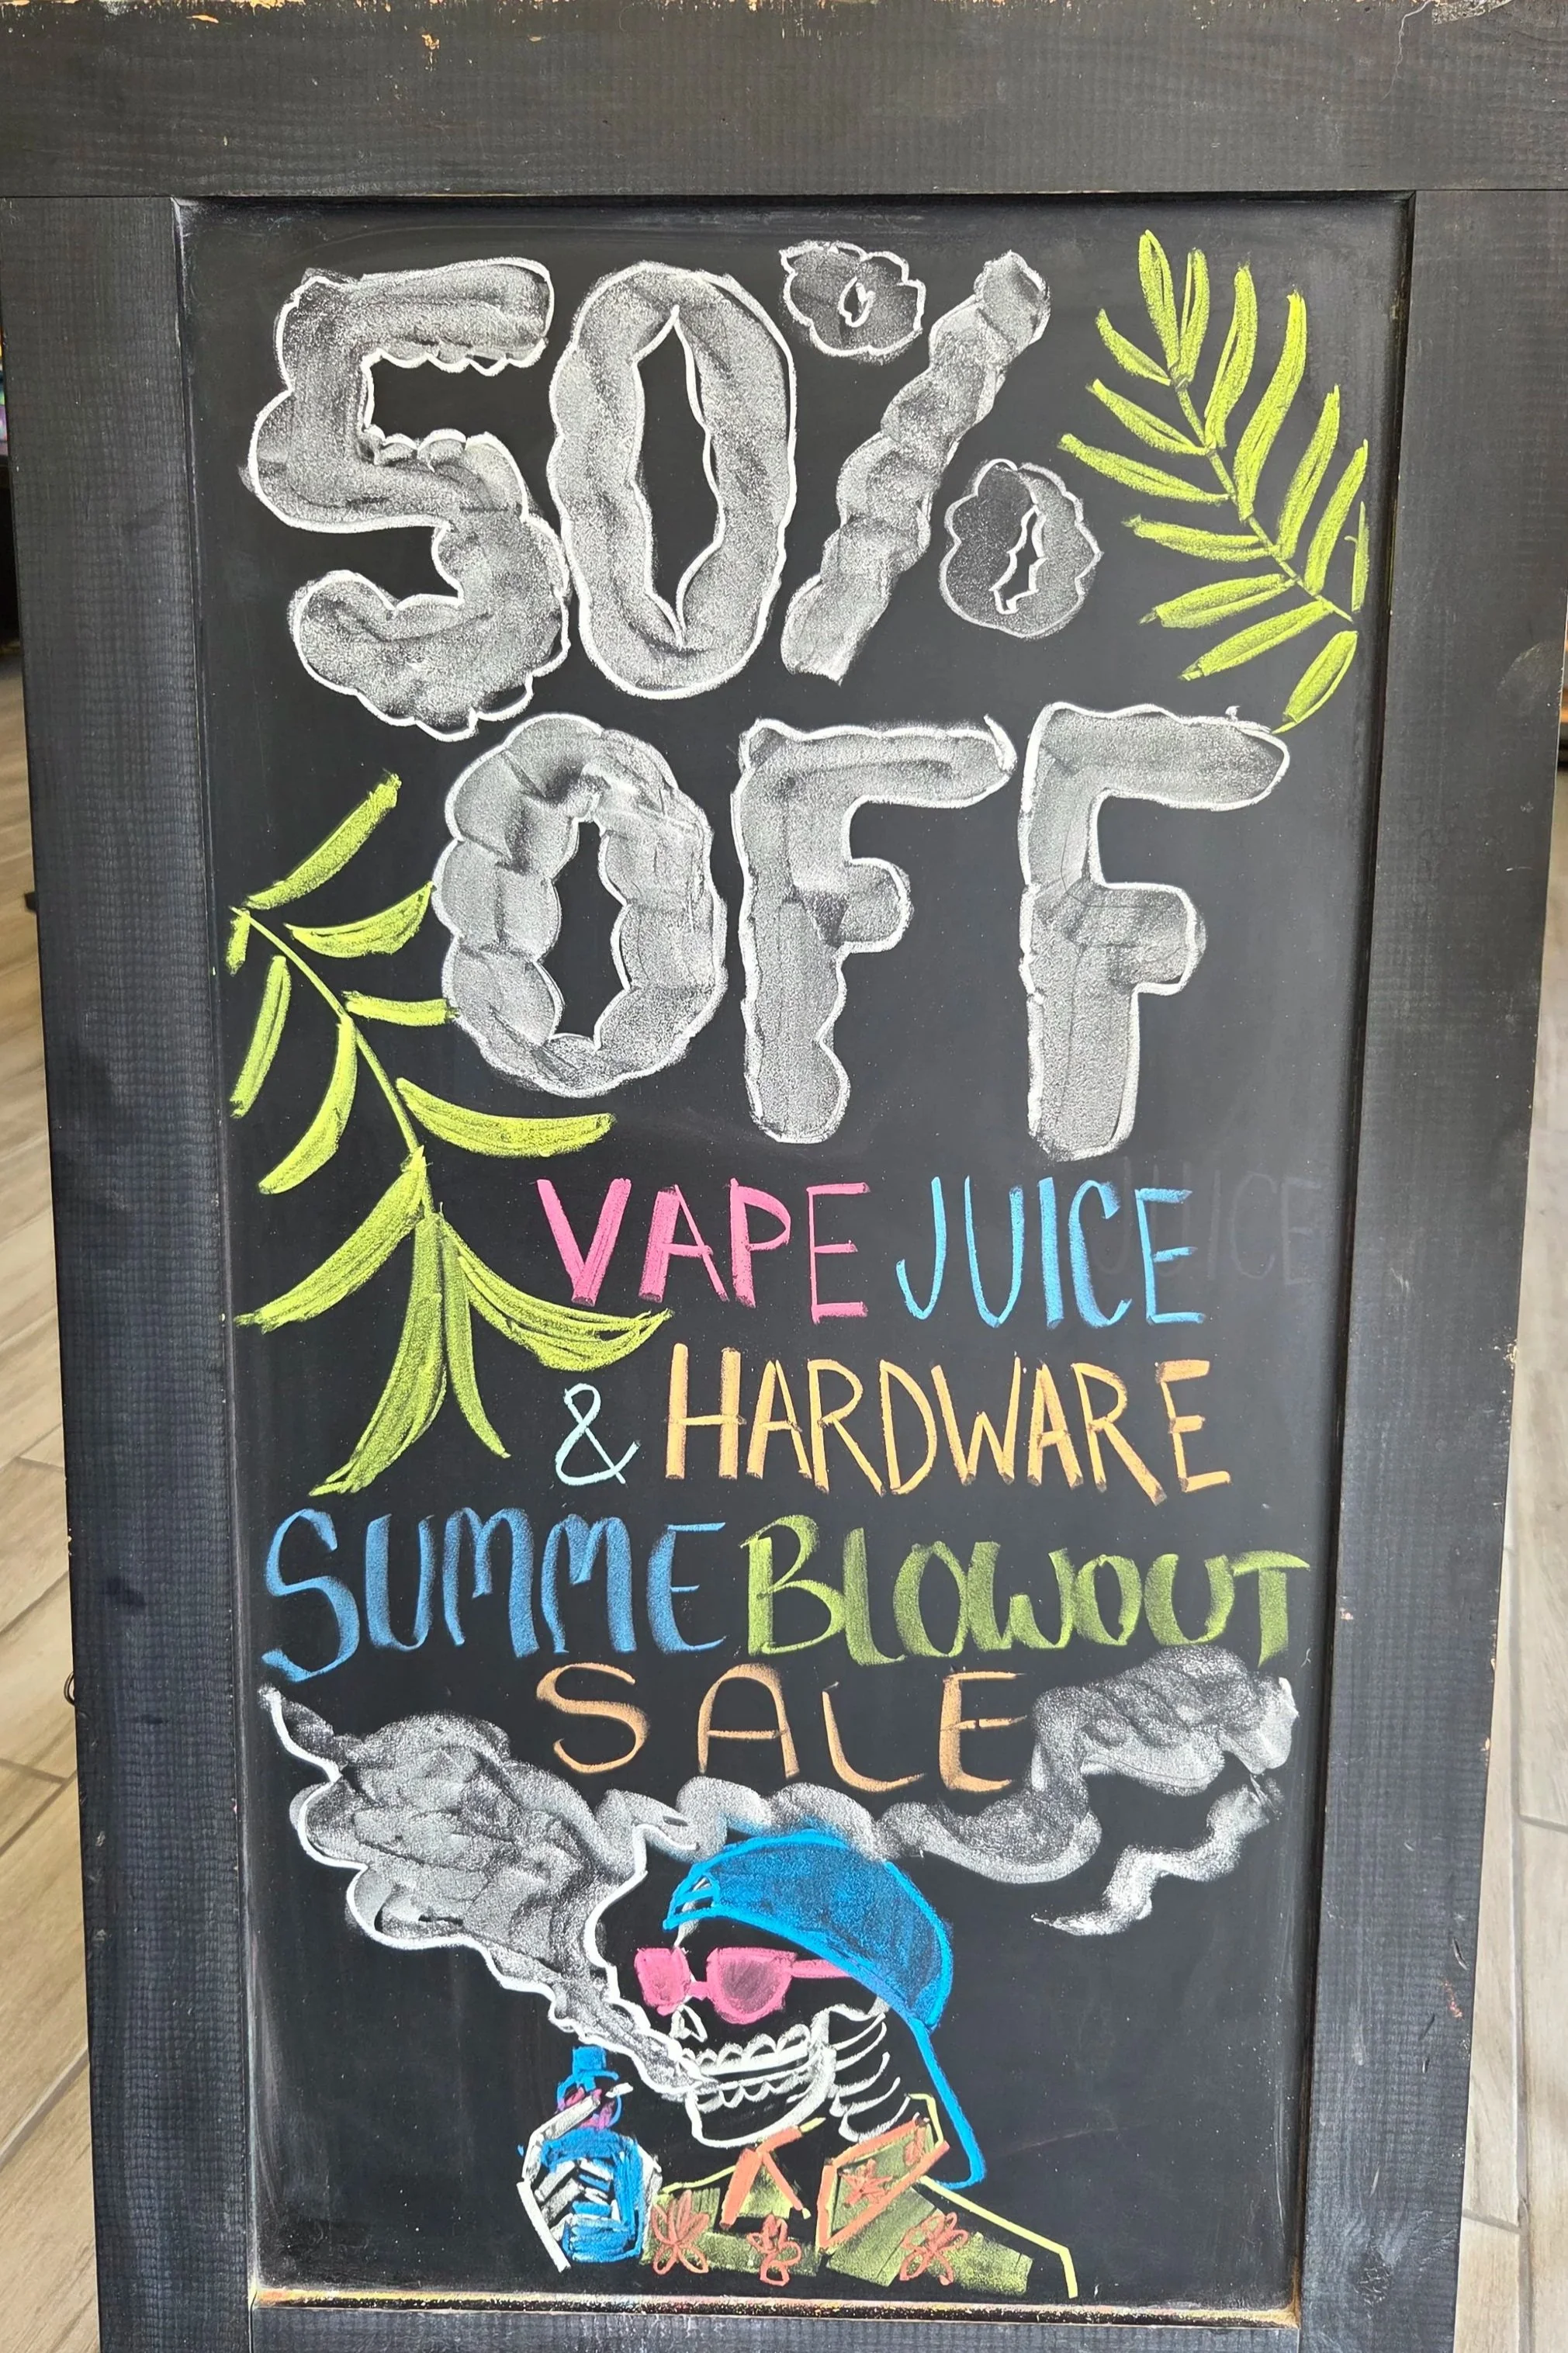 50%
OFF
VAPE JUICE
& HARDWARE
SUMME BLOWOUT
SALE